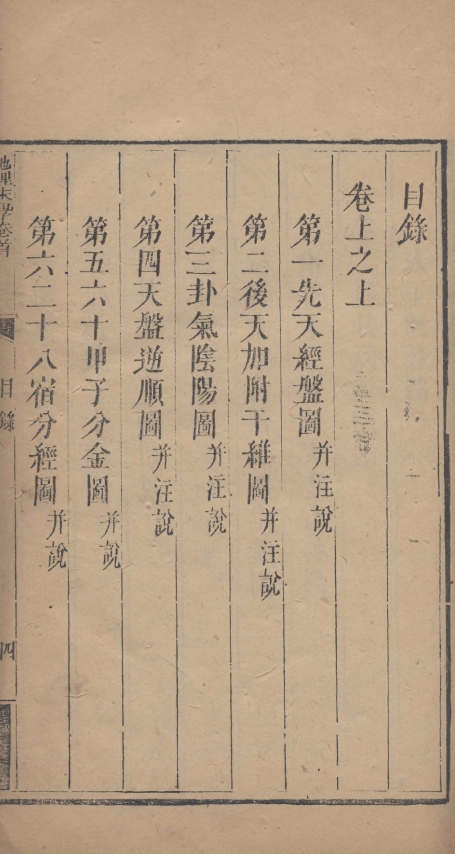 目錄
卷上之上
第一先天經盤圖并注說
第二後天加附干維圖并注說
第三卦氣陰陽圖并注說
第四天盤逆順圖并注說
第五六十甲子分金圖并說
第六二十八宿分經圖并說
卷首
目錄
四